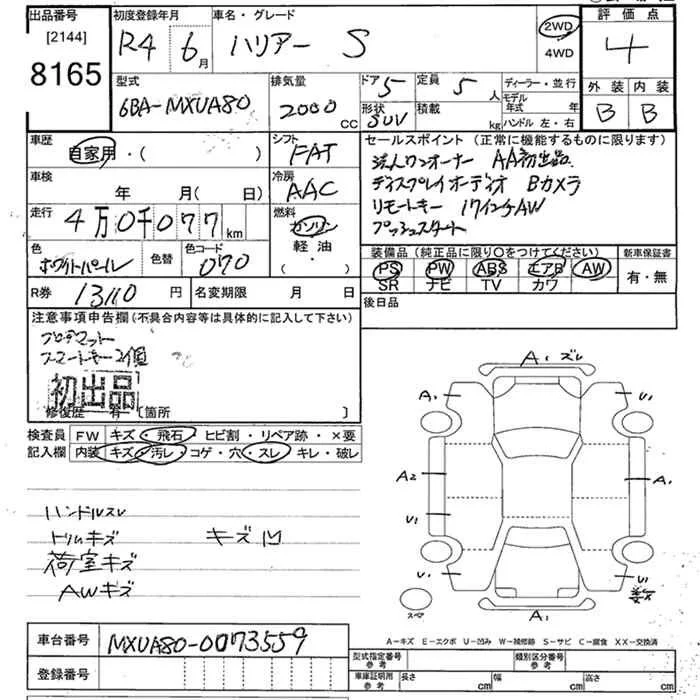 出品番号 初度登録年月 車名・グレード 評価点
[2144] R4 6月 ハリアー S 2WD 4WD 4
8165
型式 排気量 ドア 定員 ディーラー・並行 外装 内装
6BA-MXUA80 2000 CC 5 5人 モデル年式 年 B B
形状 SUV 積載 kg ハンドル 左・右
車歴 シフト セールスポイント (正常に機能するものに限ります)
自家用・( ) FAT 法人ワンオーナー AA初出品
車検 冷房 ディスプレイオーディオ Bカメラ
年 月(日) AAC リモートキー 17インチAW
走行 燃料 プッシュスタート
4万0千077km ガソリン
軽油
・( )
色 色替 色コード 装備品 (純正品に限り○をつけてください) 新車保証書
ホワイトパール 070 PS PW ABS エアB AW 有・無
SR ナビ TV カワ
R券 13110円 名変期限 月 日 後日品
注意事項申告欄(不具合内容等は具体的に記入して下さい)
フロアマット
スマートキー2個
初出品
修復歴 有 [箇所 ]
検査員 FW キズ・飛石・ヒビ割・リペア跡・×要
記入欄 内装 キズ・汚レ・コゲ・穴・スレ・キレ・破レ
A1 ズレ
A1 U1
A2 A1
U1
U1 U1
スペ A1
ハンドルスレ
トリムキズ キズ凹
荷室キズ
AWキズ
A-キズ E-エクボ U-凹み W-補修跡 S-サビ C-腐食 XX-交換済
車台番号 MXUA80-0073559
型式指定番号 参考 類別区分番号 参考
登録番号 車庫証明用 参考 長さ cm 幅 cm 高さ cm